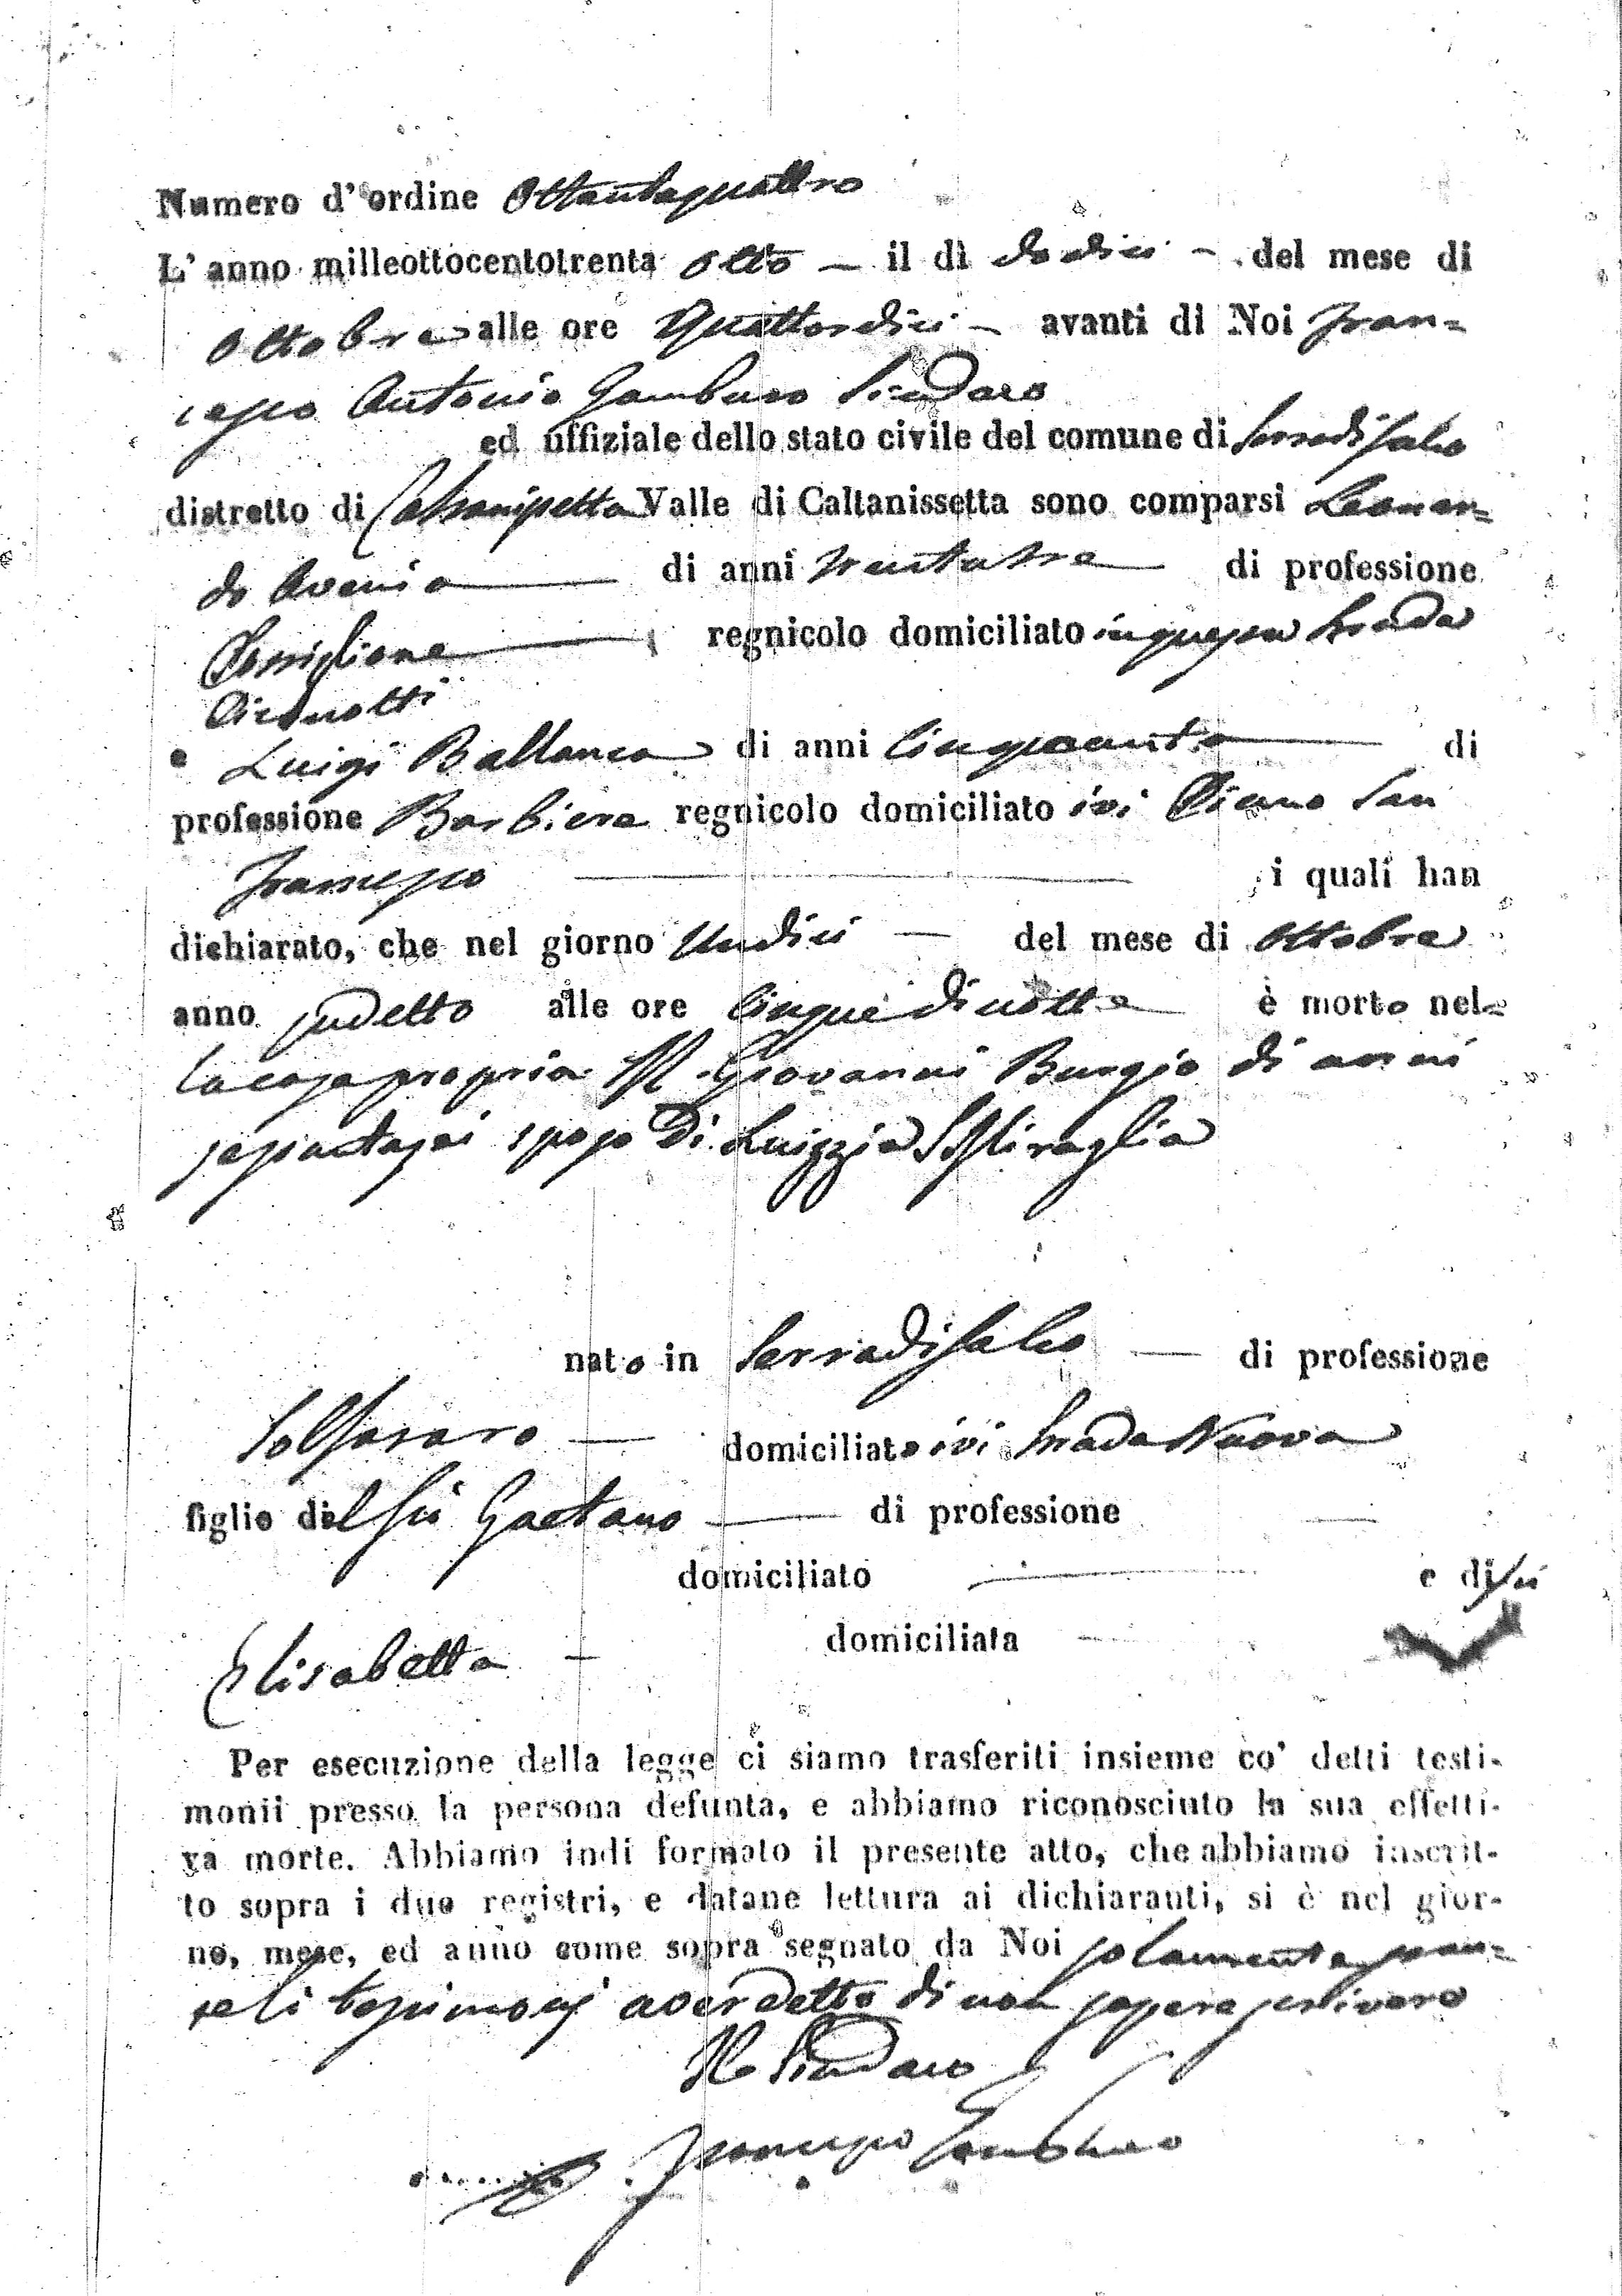 Numero d'ordine Ottantaquattro
L'anno milleottocentotrenta otto — il dì dodici — del mese di
Ottobre alle ore Quattordici — avanti di Noi Fran=
cesco Antonio Sindaco
ed uffiziale dello stato civile del comune di Serradifalco
distretto di Caltanissetta Valle di Caltanissetta sono comparsi Leonar=
do Avenia — di anni trentatre — di professione
regnicolo domiciliato in questa Strada
Pirduotti
e Luigi Ballanca di anni Cinquanta — di
professione Barbiere regnicolo domiciliato ivi Piano San
Francesco — i quali han
dichiarato, che nel giorno Undici — del mese di Ottobre
anno sudetto alle ore Cinque di notte è morto nel=
la casa propria M. Giovanni Burgio di anni
sessantasei sposo di Luizzia Miraglia
nato in Serradifalco — di professione
Solfararo — domiciliato ivi Strada Nuova
figlio del fu Gaetano — di professione —
domiciliato — e di fu
Elisabetta — domiciliata —
Per esecuzione della legge ci siamo trasferiti insieme co' detti testi-
monii presso la persona defunta, e abbiamo riconosciuto la sua effetti-
va morte. Abbiamo indi formato il presente atto, che abbiamo inscrit-
to sopra i due registri, e datane lettura ai dichiaranti, si è nel gior-
no, mese, ed anno come sopra segnato da Noi solamente
li testimonj aver detto di non sapere scrivere
Il Sindaco
Francesco